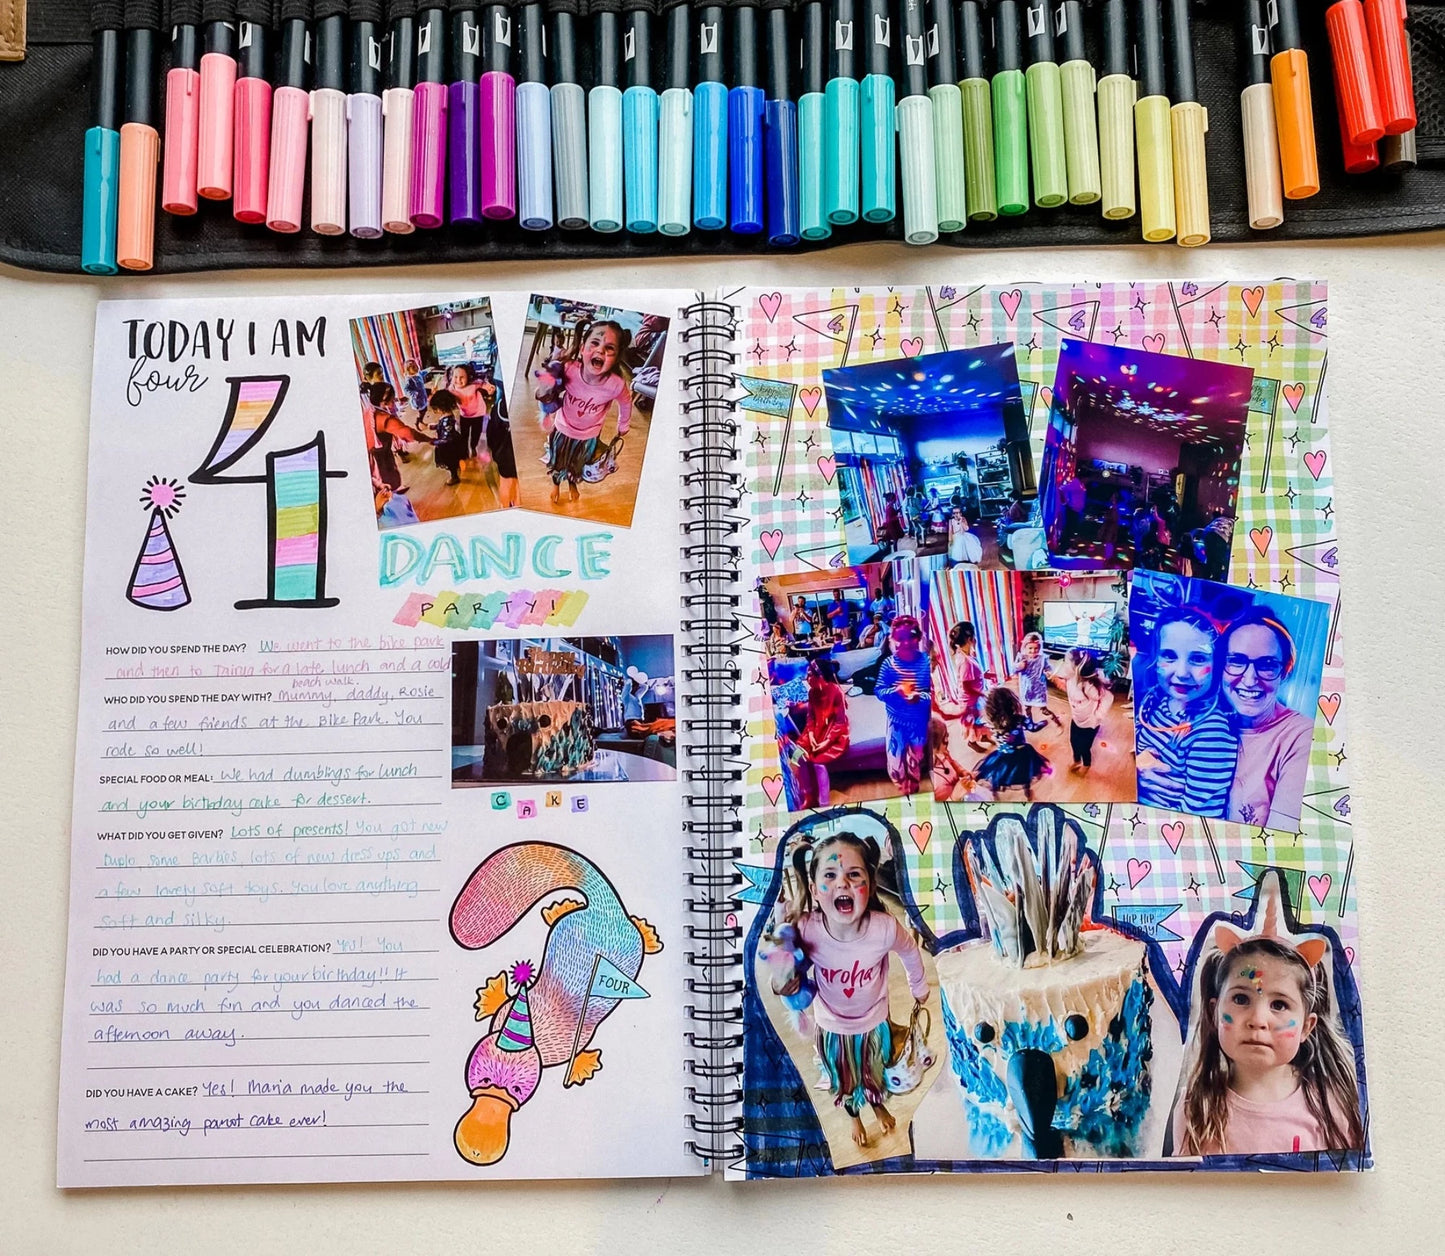 TODAY I AM
four
4
DANCE
PARTY!
HOW DID YOU SPEND THE DAY? We went to the bike park
and then to Tairua for a late lunch and a cold
beach walk.
WHO DID YOU SPEND THE DAY WITH? Mummy, daddy, Rosie
and a few friends at the Bike Park. You
rode so well!
SPECIAL FOOD OR MEAL: We had dumblings for lunch
and your birthday cake for dessert.
WHAT DID YOU GET GIVEN? Lots of presents! You got new
Duplo, some Barbies, lots of new dress ups and
a few lovely soft toys. You love anything
soft and silky.
DID YOU HAVE A PARTY OR SPECIAL CELEBRATION? Yes! You
had a dance party for your birthday!! It
was so much fun and you danced the
afternoon away.
DID YOU HAVE A CAKE? Yes! Maria made you the
most amazing parrot cake ever!
CAKE
FOUR
aroha
4
4
4
4
aroha
HIP HIP
HOORAY!